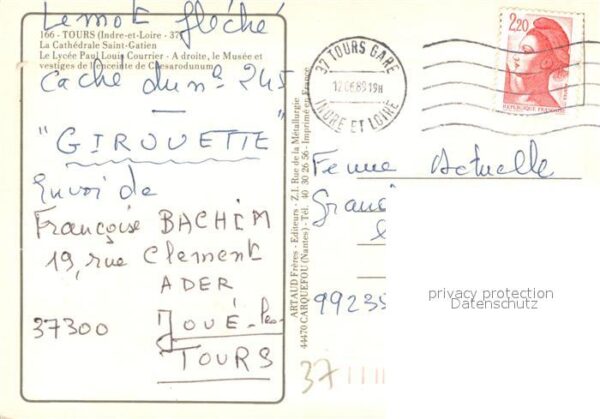 Le mot fléché
166 - TOURS (Indre-et-Loire - 37)
La Cathédrale Saint-Gatien
Le Lycée Paul Louis Courrier - A droite, le Musée et
vestiges de l'enceinte de Caesarodunum
caché du n° 245
"GIROUETTE"
Envoi de
Françoise BACHEM
19, rue Clement
ADER
37300 JOUÉ-les-
TOURS
ARTAUD Frères - Editeurs - Z.I. Rue de la Métallurgie
44470 CARQUEFOU (Nantes) - Tél. 40 30 26 56 - Imprimé en France
37 TOURS GARE
12 09 89 19H
INDRE ET LOIRE
2,20
REPUBLIQUE FRANCAISE
Femme Actuelle
Grand
99235
37
privacy protection
Datenschutz